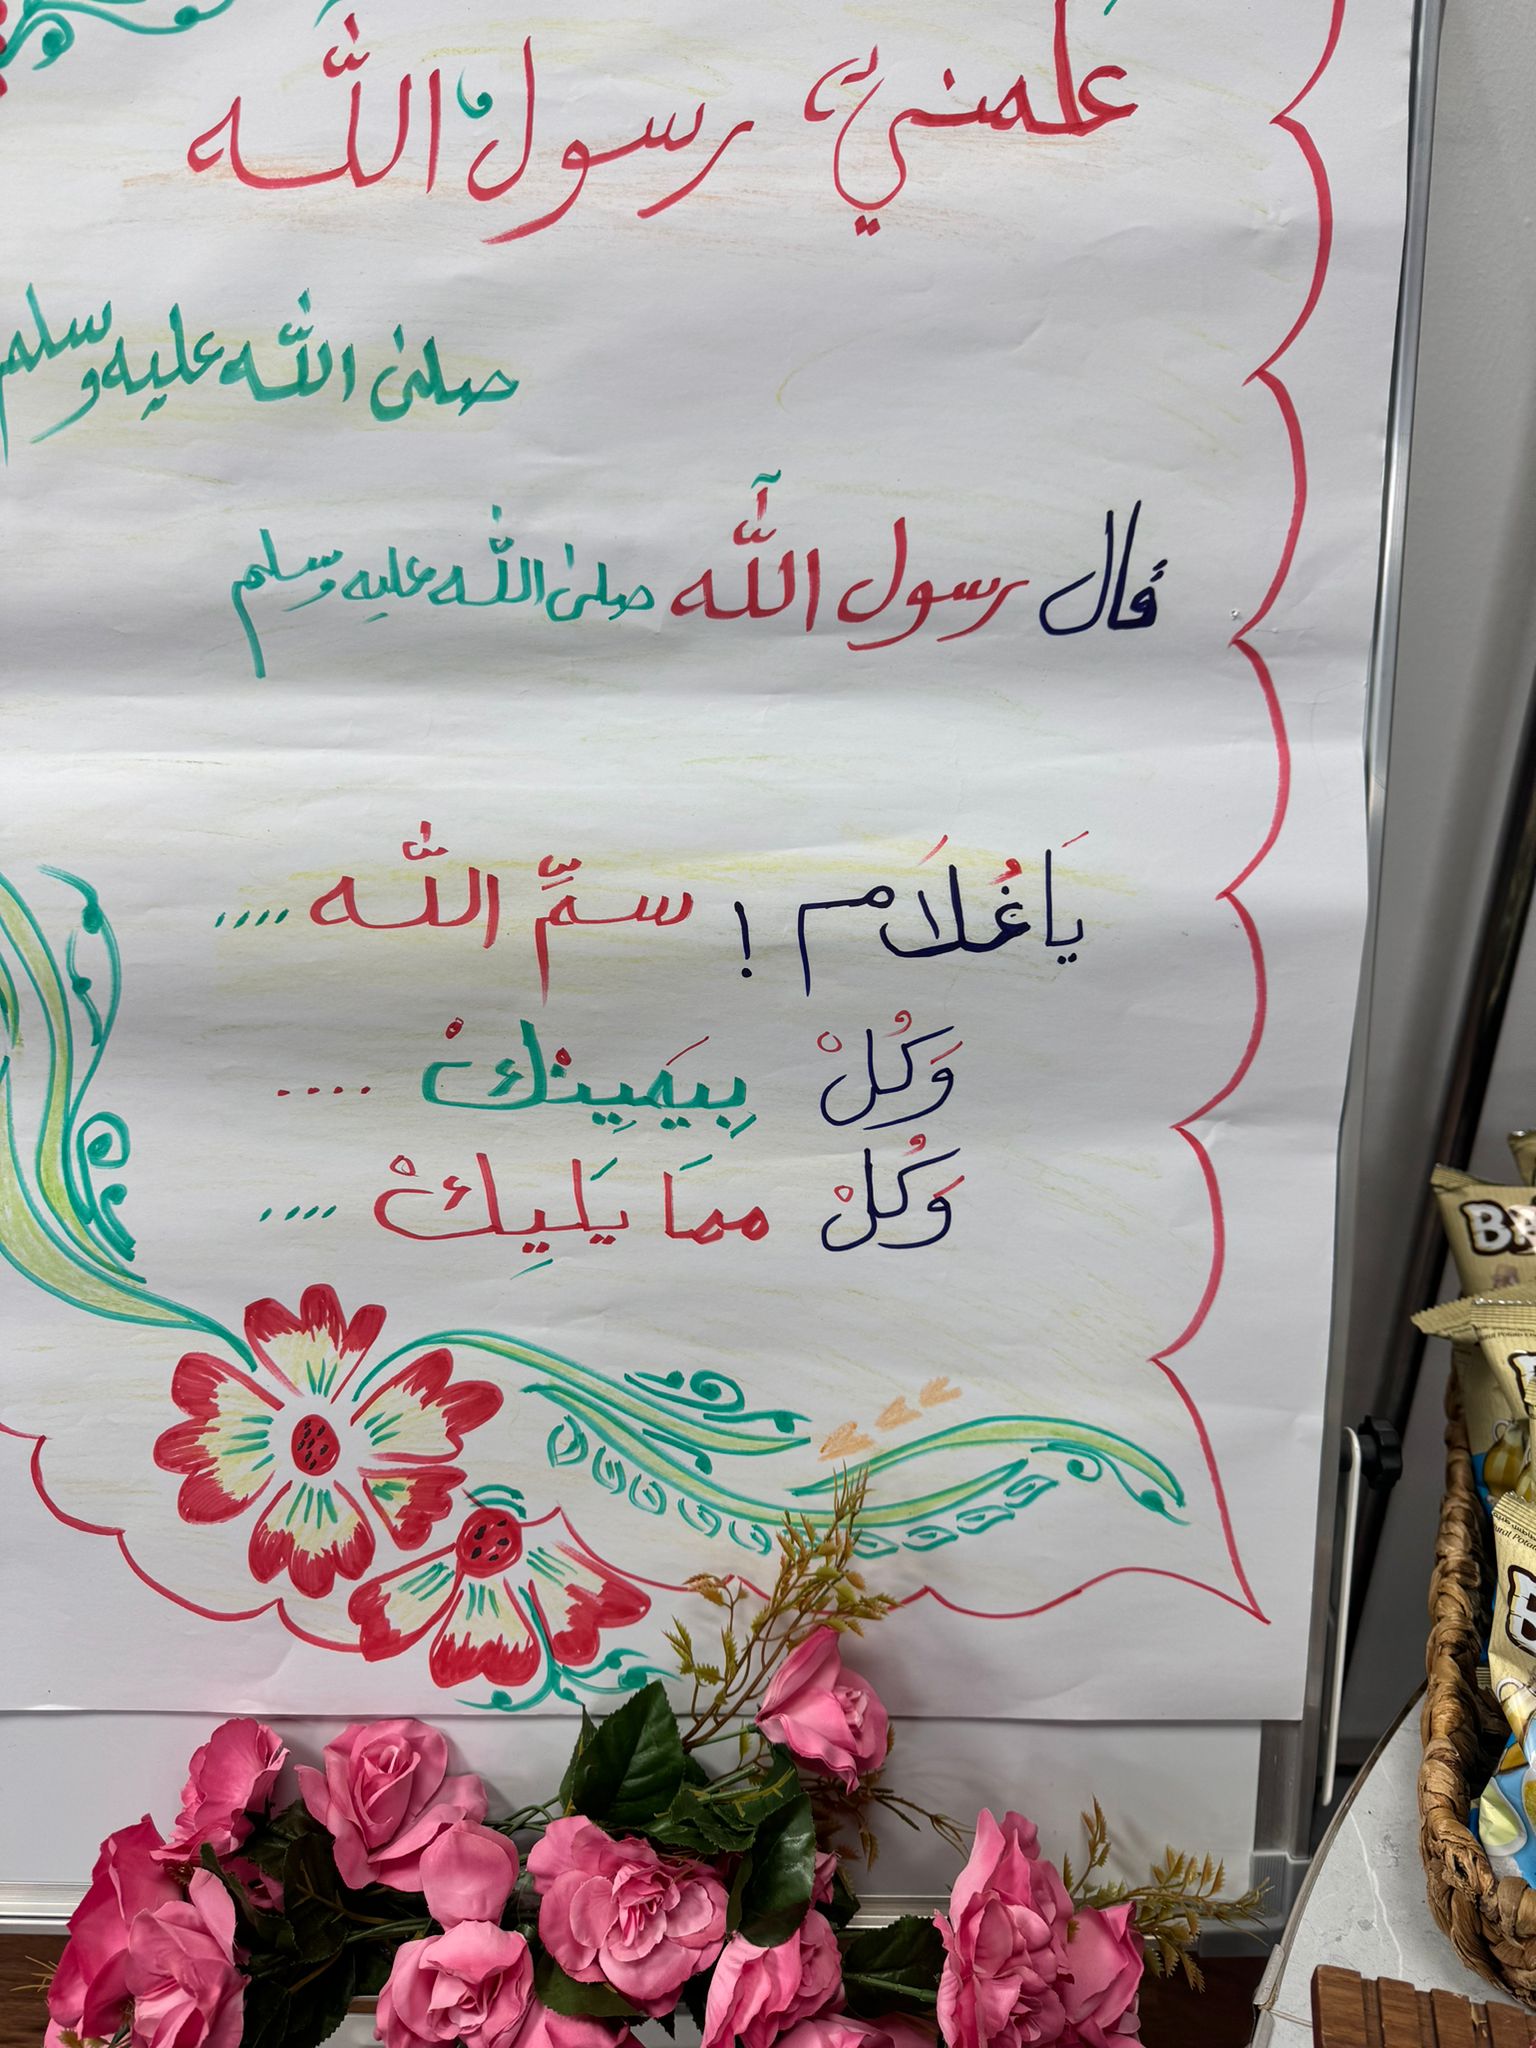 علمني رسولُ اللّٰه
صلى اللّٰه عليه وسلم
قال رسول اللّٰه صلى اللّٰه عليه وسلم
يَا غُلَام ! سمِّ اللّٰه ....
وَكُلْ بِيَمِينكْ ....
وَكُلْ ممَا يَلِيكْ ....